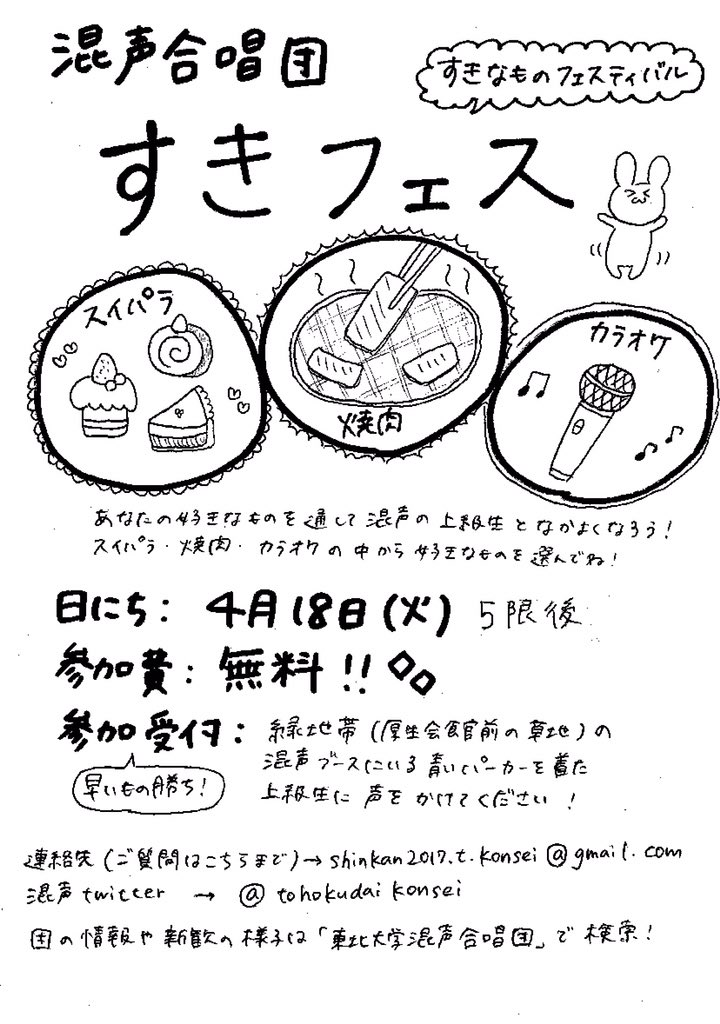 混声合唱団
すきなものフェスティバル
すきフェス
スイパラ
焼肉
カラオケ
あなたの好きなものを通して混声の上級生となかよくなろう！
スイパラ・焼肉・カラオケの中から好きなものを選んでね！
日にち：4月18日(火) 5限後
参加費：無料!!
参加受付：緑地帯(厚生会館前の草地)の
混声ブースにいる青いパーカーを着た
上級生に声をかけてください！
早いもの勝ち！
連絡先(ご質問はこちらまで)→shinkan2017.t.konsei@gmail.com
混声twitter → @tohokudaikonsei
団の情報や新歓の様子は「東北大学混声合唱団」で検索！